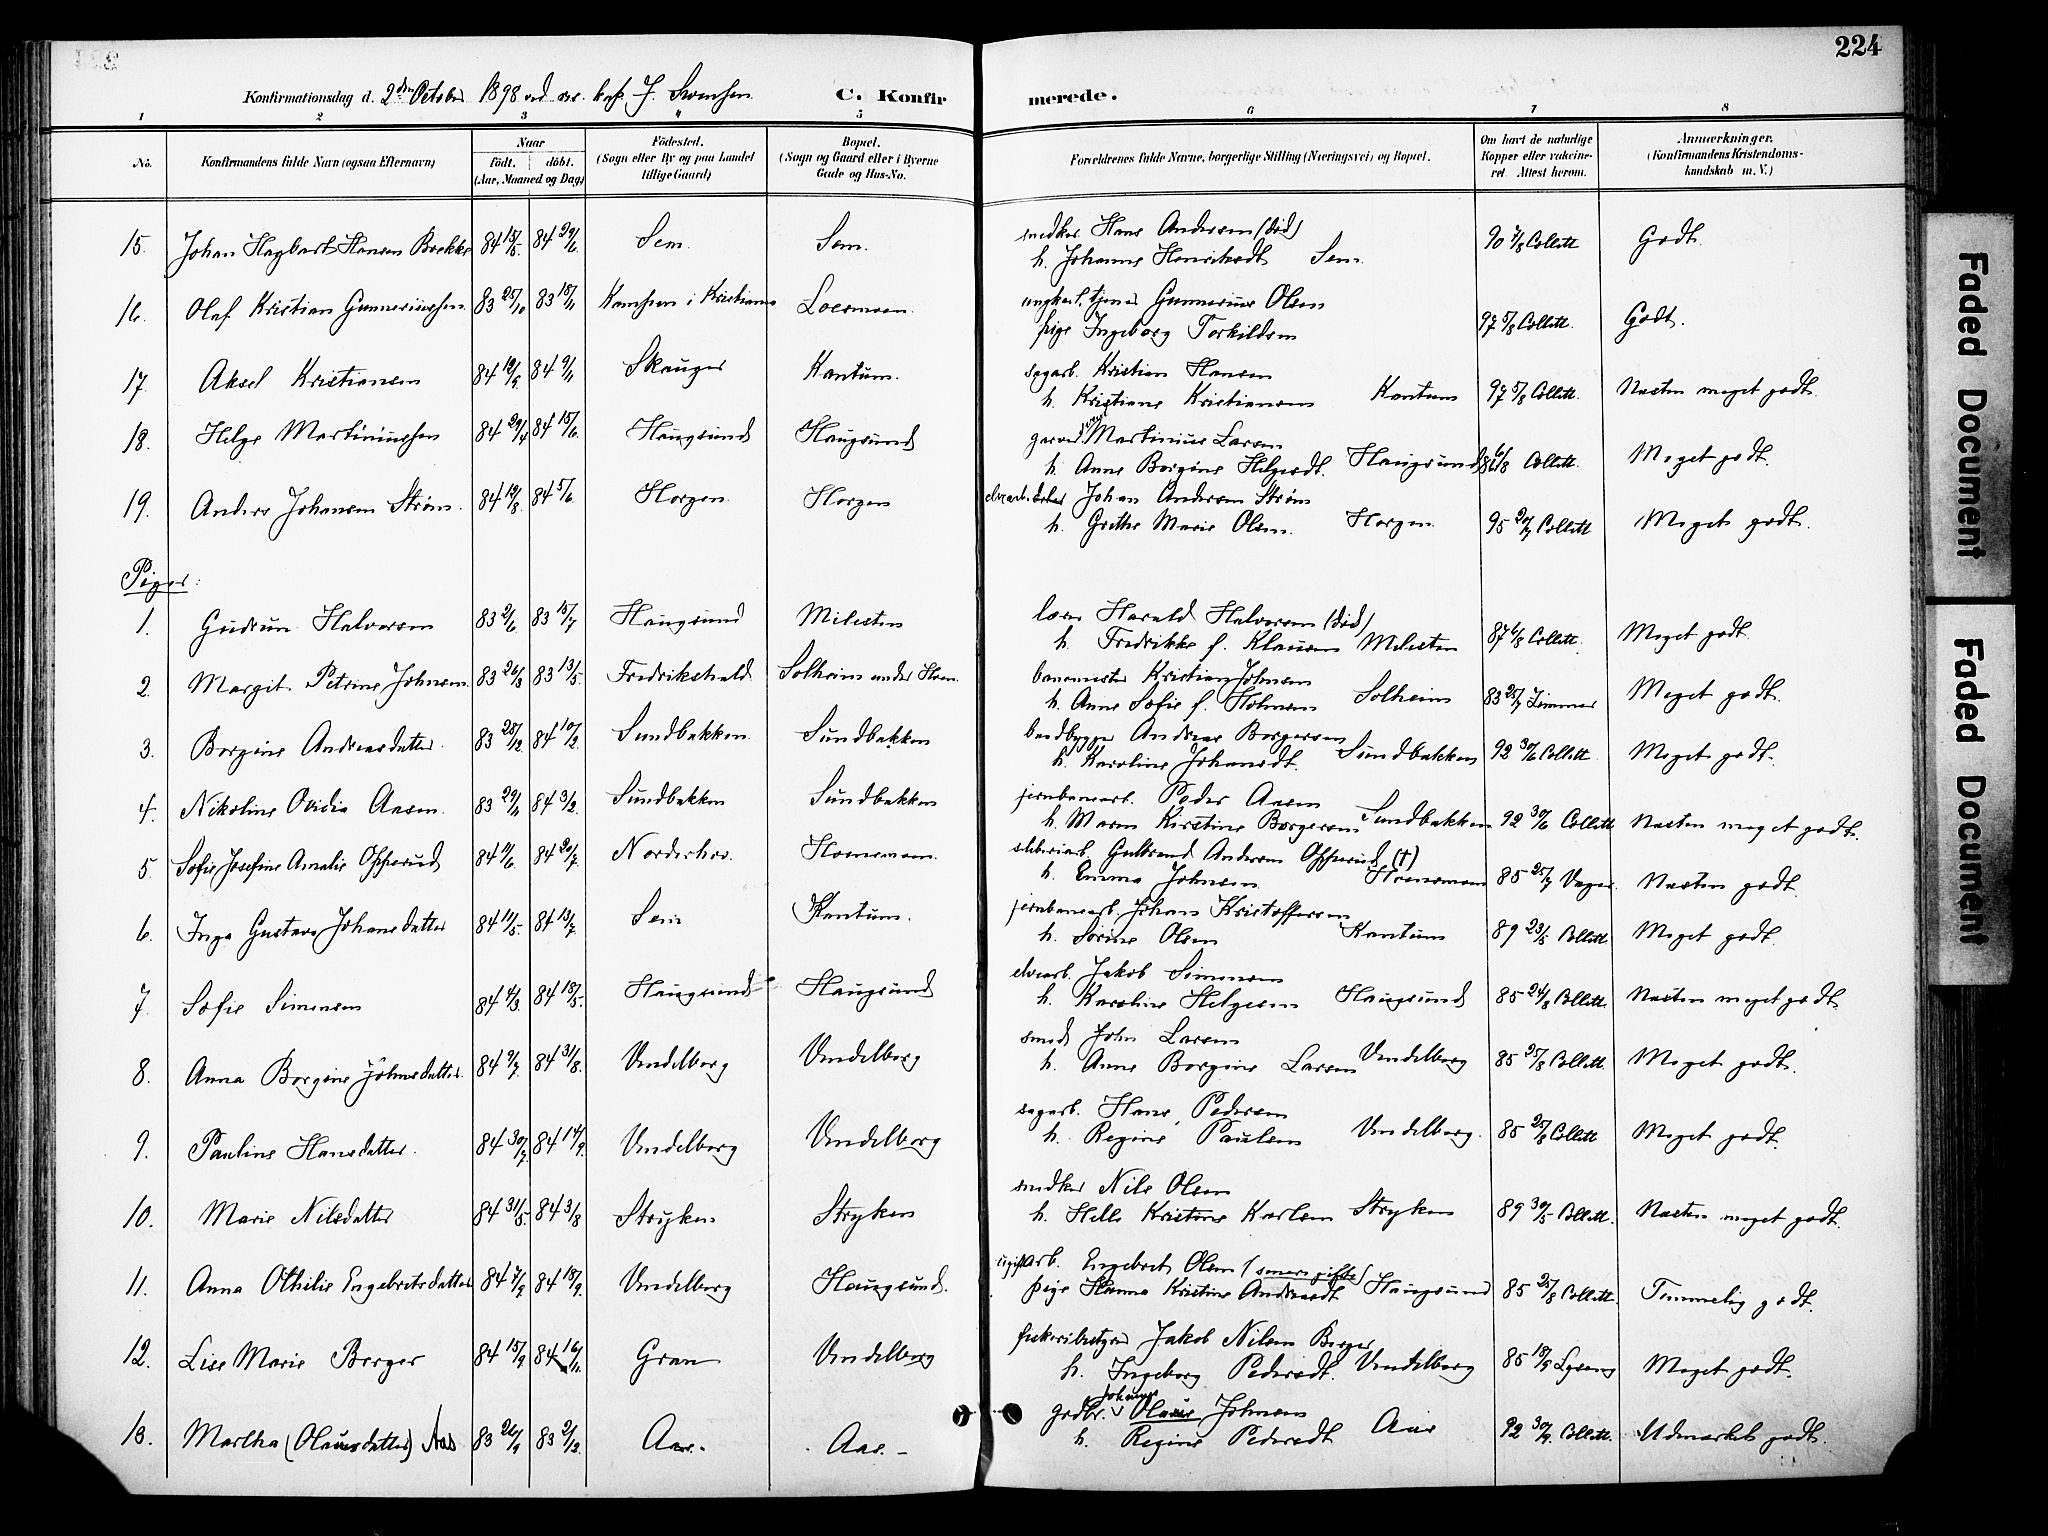 224
Konfirmationsdag d. 2den October 1898 ved J. Svensen.
C. Konfirmerede.
1 2 3 4 5 6 7 8
No. Konfirmandens fulde Navn (ogsaa Efternavn) Naar födt. döbt. (Aar, Maaned og Dag) Födested. (Sogn eller By og paa Landet tillige Gaard) Bopæl. (Sogn og Gaard eller i Byerne Gade og Hus-No. Forældrenes fulde Navne, borgerlige Stilling (Næringsvei) og Bopæl. Om havt de naturlige Kopper eller vakcineret. Attest herom. Anmærkninger. (Konfirmandens Kristendomskundskab m. V.)
15. Johan Hagbart Hansen Brekke 84 15/5. 84 29/6. Sem. Sem. Hans Andersen (död) 90 7/8 Collett Godt.
h. Johanne Sem.
16. Olaf Kristian Gunneriussen 83 25/10 83 18/11 i Kristiania Loesmoen. ungkarl, tjener Gunnerius Olsen 97 5/8 Collett. Godt.
pige Ingeborg Torkildsen
17. Aksel Kristiansen 84 12/9 84 9/11 Skauger Kantum. sagarb. Kristian Hansen 97 5/8 Collett. Næsten meget godt.
h. Kristiane Kristiansen Kantum
18. Helge Martiniussen 84 29/4 84 15/6. Haugsund Haugsund Martinius Larsen 86 6/8 Collett. Meget godt.
h. Anne Borgine Helgesdt. Haugsund
19. Anders Johansen Strøm. 84 12/3. 84 5/6. Horgen. Horgen Johan Andersen Strøm 95 20/7 Collett Meget godt.
h. Grethe Marie Olsen. Horgen.
Piger:
1. Gudrun Halvorsen 83 2/6. 83 15/7 Haugsund Milesten Harald Halvorsen (död) 87 6/8 Collett. Meget godt.
h. Fredrikke f. Klausen Milesten
2. Margit Petrine Johnsen 83 26/3 83 13/5. Fredrikshald. Solheim under banemester Kristian Johnsen 83 25/7 Zimmer Meget godt.
h. Anne Sofie f. Solheim
3. Borgine Andreasdatter. 83 28/12. 84 10/2. Sundbakken. Sundbakken baadbygger Andreas Borgersen 92 30/6 Collett. Meget godt.
h. Karoline Johansdt. Sundbakken
4. Nikoline Ovidia Aasen. 83 29/11 84 3/2. Sundbakken Sundbakken jernbanearb. Peder Aasen 92 30/6 Collett Næsten meget godt.
h. Maren Kirstine Borgersen Sundbakken
5. Sofie Josefine Amalie Opperud 84 11/6. 84 20/7. Norderhov. Hoensmoen. sliberiarb. Gulbrand Andersen Opperud (†) 85 25/7 Næsten godt.
h. Emma Johnsen Hoensmoen
6. Inga Gustava Johansdatter 84 11/5. 84 13/7. Sem Kantum. jernbanearb. Johan Kristoffersen 89 23/5 Collett Meget godt.
h. Sorine Olsen Kantum
7. Sofie Simensen 84 4/3. 84 18/5. Haugsund Haugsund elvearb. Jakob Simensen 85 24/8 Collett. Næsten meget godt.
h. Karoline Helgesen Haugsund
8. Anna Borgine Johnsdatter. 84 9/7. 84 31/8. Vendelborg Vendelborg smed John Larsen 85 25/8 Collett. Meget godt.
h. Anne Borgine Larsen Vendelborg
9. Pauline Hansdatter. 84 30/7. 84 14/9. Vendelborg Vendelborg sagarb. Hans Pedersen 85 25/8 Collett Meget godt.
h. Regine Paulsen Vendelborg.
10. Marie Nilsdatter 84 31/5. 84 3/8 Stryken Stryken Nils Olsen 89 30/5 Collett. Næsten meget godt.
h. Helle Kristine Karlsen Stryken
11. Anna Othilie Engebretsdatter 84 7/9 84 18/9. Vendelborg Haugsund. ugift arb. Engebret Olsen (senere gifte) 85 25/8 Collett. Temmelig godt.
pige Hanna Kristine Andreasdt Haugsund
12. Lise Marie Berger 84 15/9 84 16/11. Gran Vendelborg Jakob Nilsen Berger 85 18/9 Meget godt.
h. Ingeborg Pedersdt. Vendelborg
13. Martha (Olausdatter) Aas 83 26/9 83 2/12. Aas. Aas. gdbr. Johannes Olaus Johnsen 92 30/9. Collett. Udmærket godt.
h. Regine Pedersdt Aas
Faded Document
Faded Document